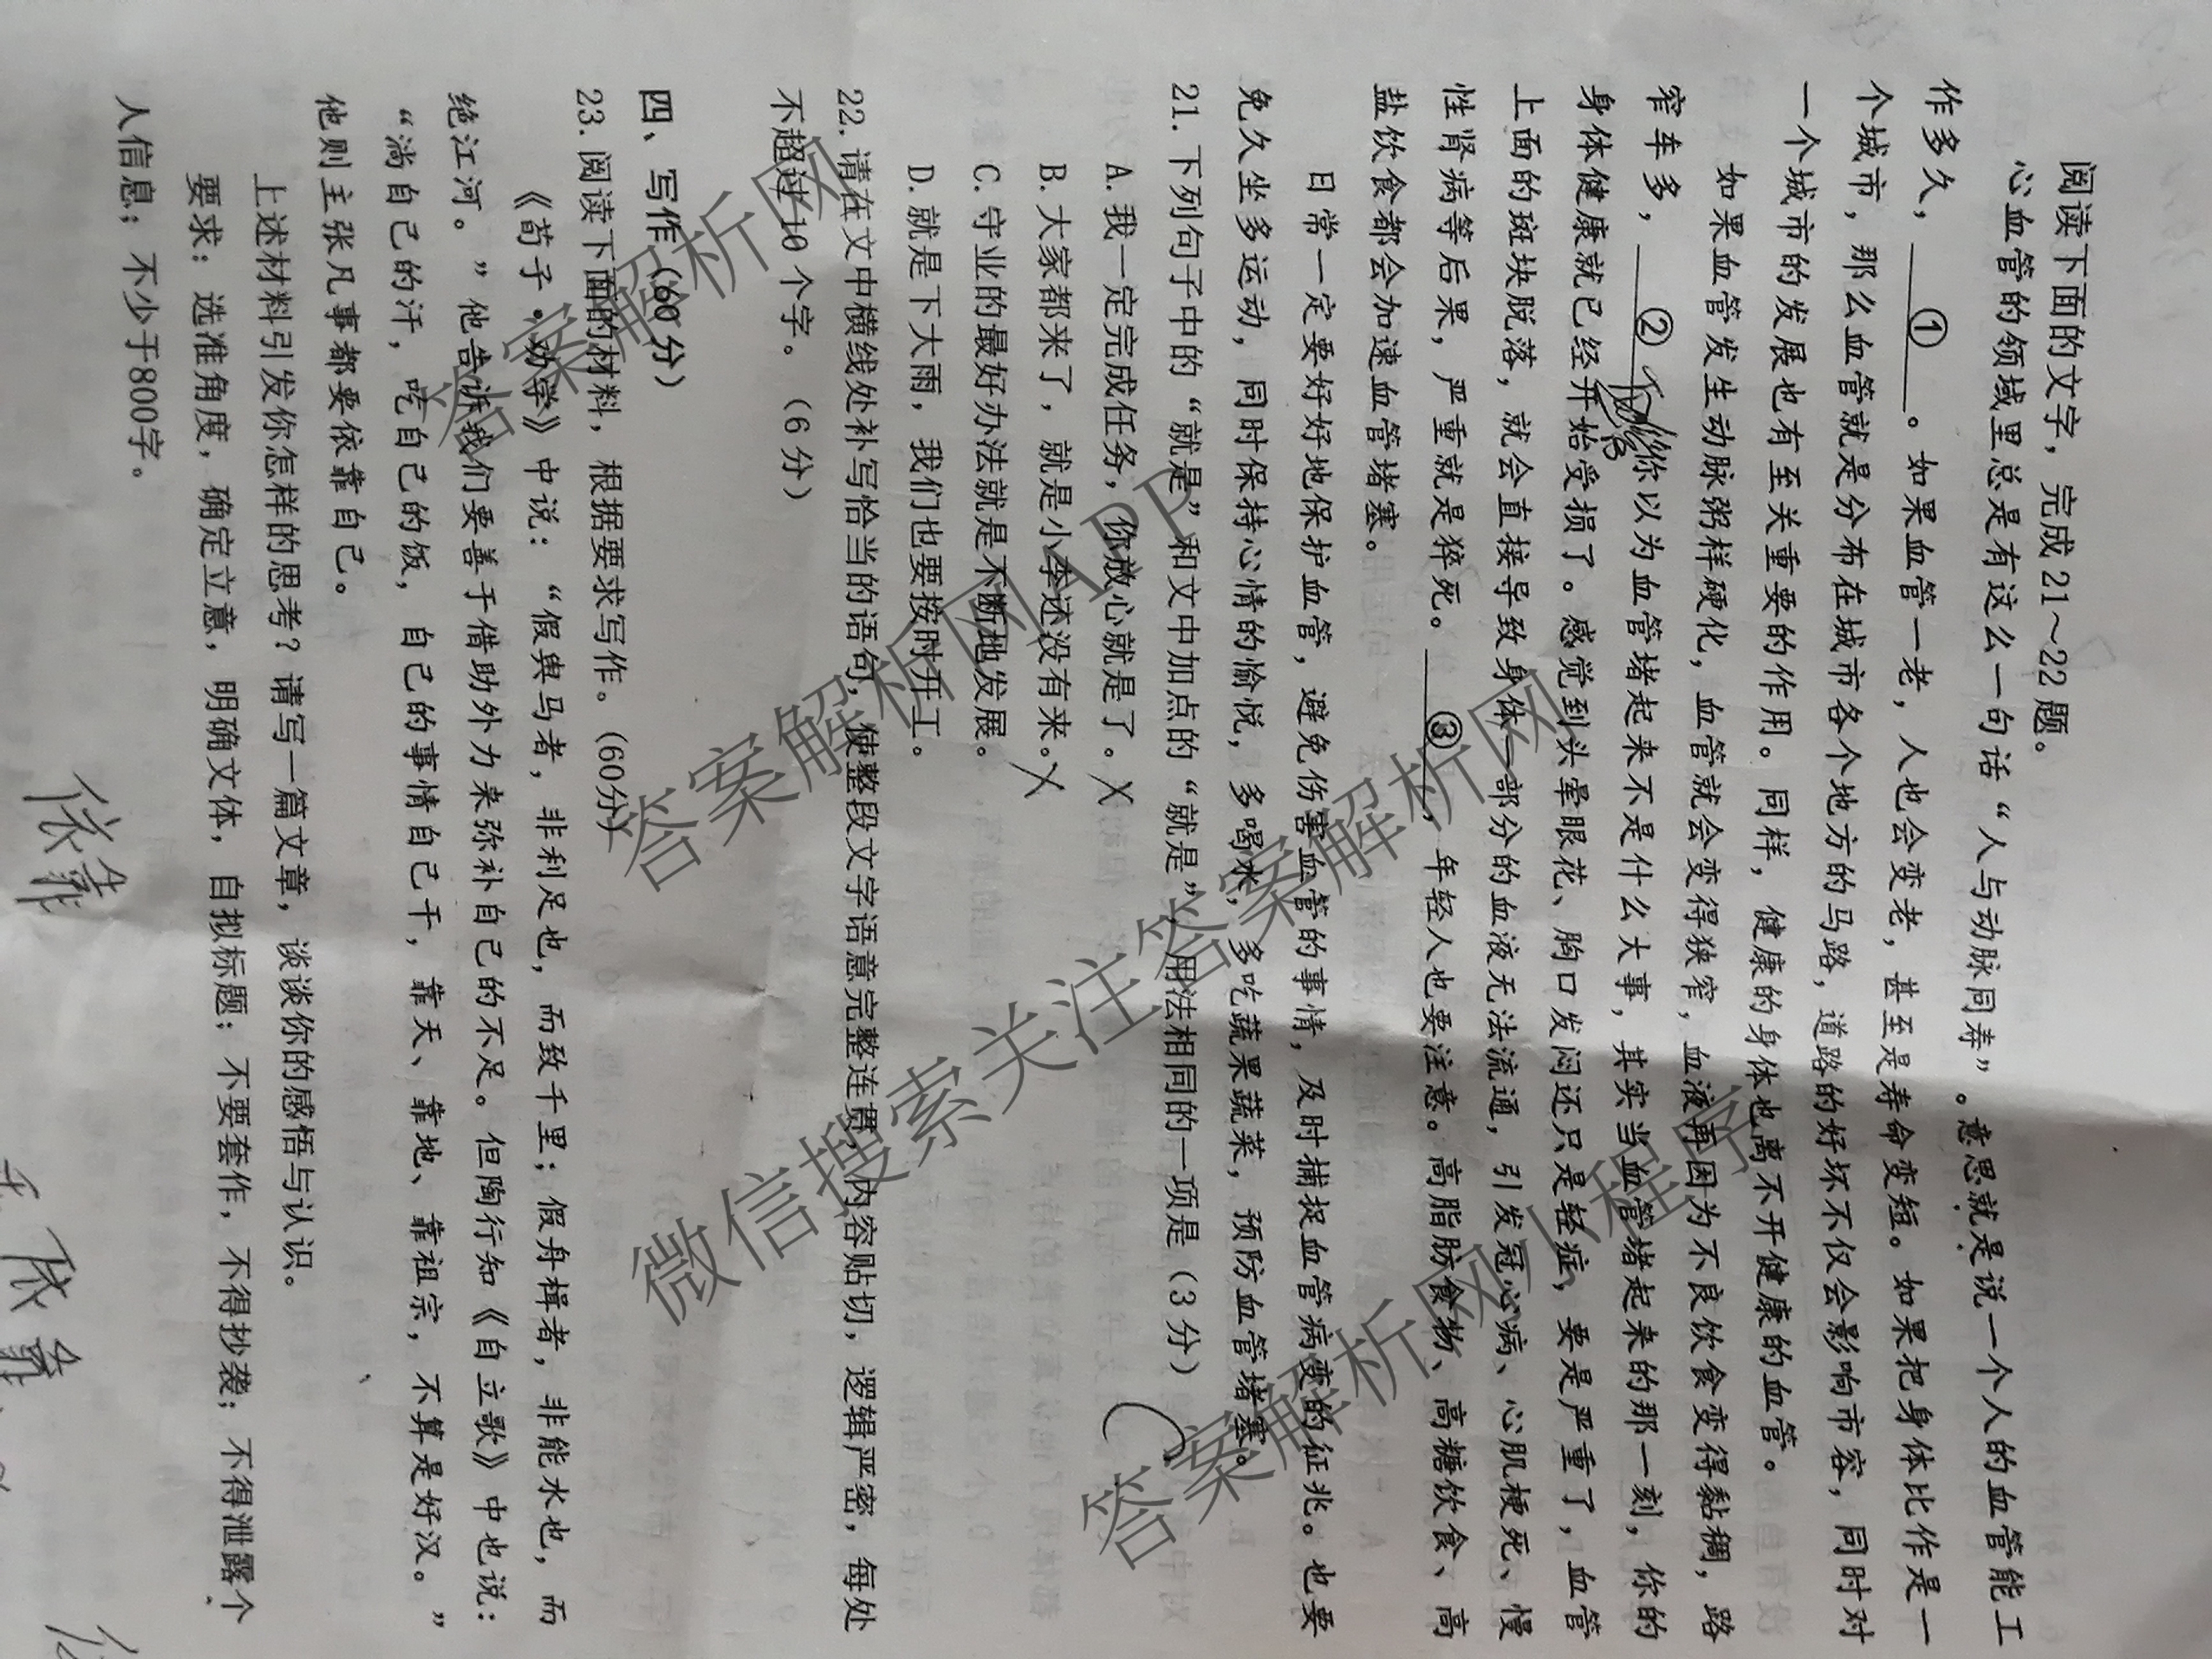 阅读下面的文字，完成21～22题。
心血管的领域里总是有这么一句话“人与动脉同寿”。意思就是说一个人的血管能工
作多久，①。如果血管一老，人也会变老，甚至是寿命变短。如果把身体比作是一
个城市，那么血管就是分布在城市各个地方的马路，道路的好坏不仅会影响市容，同时对
一个城市的发展也有至关重要的作用。同样，健康的身体也离不开健康的血管。
如果血管发生动脉粥样硬化，血管就会变得狭窄，血液再因为不良饮食变得黏稠，路
窄车多，②你以为血管堵起来不是什么大事，其实当血管堵起来的那一刻，你的
身体健康就已经开始受损了。感觉到头晕眼花、胸口发闷还只是轻症，要是严重了，血管
上面的斑块脱落，就会直接导致身体一部分的血液无法流通，引发冠心病、心肌梗死、慢
性肾病等后果，严重就是猝死。③，年轻人也要注意。高脂肪食物、高糖饮食、高
盐饮食都会加速血管堵塞。
日常一定要好好地保护血管，避免伤害血管的事情，及时捕捉血管病变的征兆。也要
免久坐多运动，同时保持心情的愉悦，多喝水，多吃蔬果蔬菜，预防血管堵塞。
21.下列句子中的“就是”和文中加点的“就是”，用法相同的一项是（3分）
A.我一定完成任务，你放心就是了。
B.大家都来了，就是小李还没有来。
C.守业的最好办法就是不断地发展。
D.就是下大雨，我们也要按时开工。
22.请在文中横线处补写恰当的语句，使整段文字语意完整连贯，内容贴切，逻辑严密，每处
不超过10个字。（6分）
四、写作（60分）
23.阅读下面的材料，根据要求写作。（60分）
《荀子·劝学》中说：“假舆马者，非利足也，而致千里；假舟楫者，非能水也，而
绝江河。”他告诉我们要善于借助外力来弥补自己的不足。但陶行知《自立歌》中也说：
“淌自己的汗，吃自己的饭，自己的事情自己干，靠天、靠地、靠祖宗，不算是好汉。”
他则主张凡事都要依靠自己。
上述材料引发你怎样的思考？请写一篇文章，谈谈你的感悟与认识。
要求：选准角度，确定立意，明确文体，自拟标题；不要套作，不得抄袭；不得泄露个
人信息；不少于800字。
依靠
依靠
答案解析网
答案解析网APP
微信搜索关注答案解析网